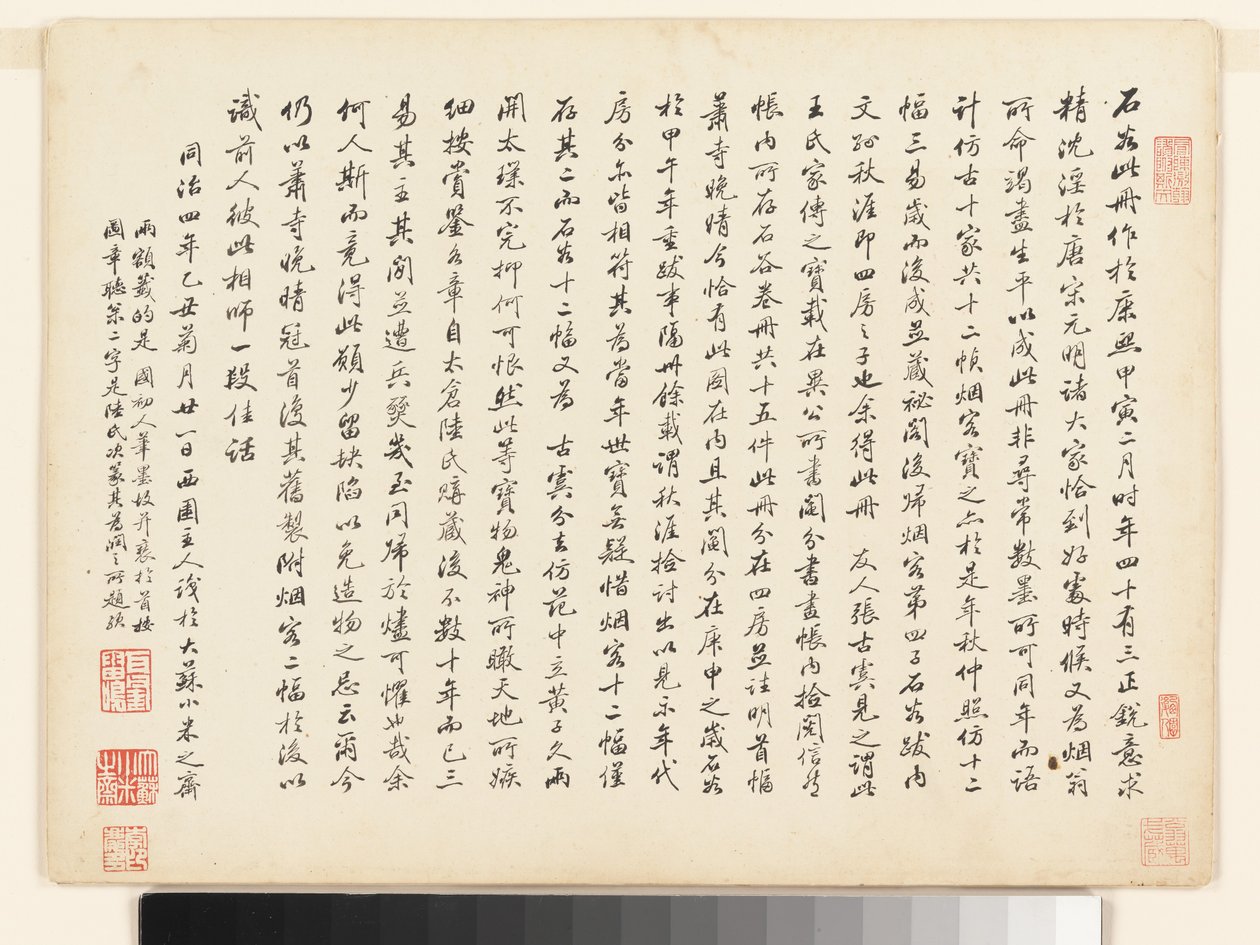 石谷此冊作於康熙甲寅二月时年四十有三正銳意求
精沈淫於唐宋元明諸大家恰到好處時候又為烟翁
所命竭盡生平以成此冊非尋常數墨所可同年而語
計仿古十家共十二幀烟客寶之亦於是年秋仲照仿十二
幅三易歲而後成並藏祕閣後歸烟客第四子石谷跋内
文孙秋涯即四房之子也余得此冊 友人張古虞見之謂此
王氏家傳之寶載在異公所書鬮分書畫帳内拾閱信然
帳内所存石谷卷冊共十五件此冊分在四房並註明首幅
蕭寺晚晴今恰有此圖在内且其鬮分在庚申之歲石谷
於甲午年重跋事隔卅餘載謂秋涯拾討出以見示年代
房分亦皆相符其為當年世寶無疑惜烟客十二幅僅
存其二而石谷十二幅又為 古虞分去仿范中立黃子久兩
開太璞不完抑何可恨然此等寶物鬼神所瞰天地所嫉
细按賞鑒各章自太倉陸氏購藏後不數十年而已三
易其主其間並遭兵燹幾至同歸於燼可懼也哉余
何人斯而竟得此願少留缺陷以免造物之忌云爾今
仍以蕭寺晚晴冠首復其舊製附烟客二幅於後以
識前人彼此相師一段佳話
同治四年乙丑菊月廿一日西圃主人識於大蘇小米之齋
兩額籤的是 國初人筆墨故并裱於首按
圖章聽篆二字是陸氏次篆其為潤之所題歟
大蘇小米之齋